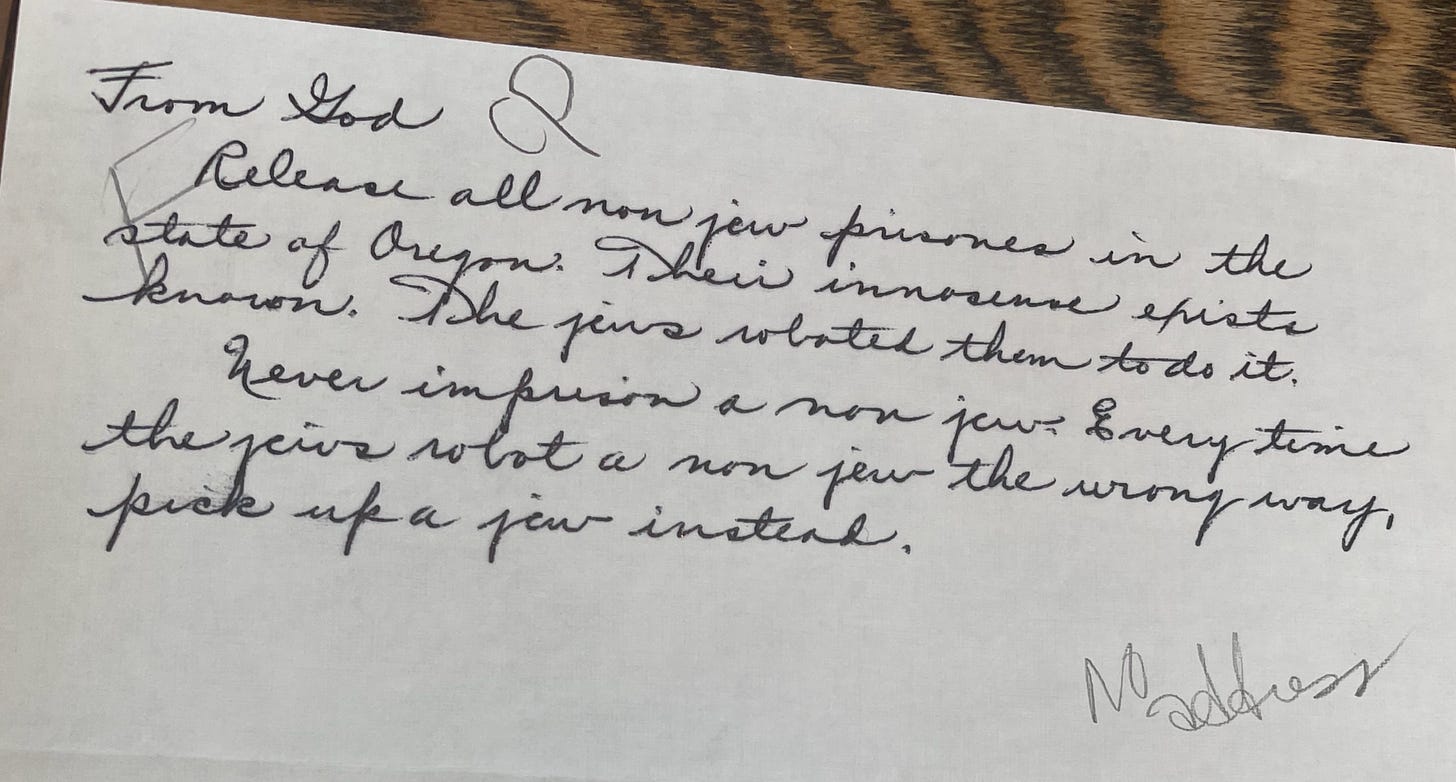 From God
Release all non jew prisones in the
state of Oregon. Their innosense exists
known. The jews roboted them to do it.
Never imprison a non jew. Every time
the jews robot a non jew the wrong way,
pick up a jew instead.
No address